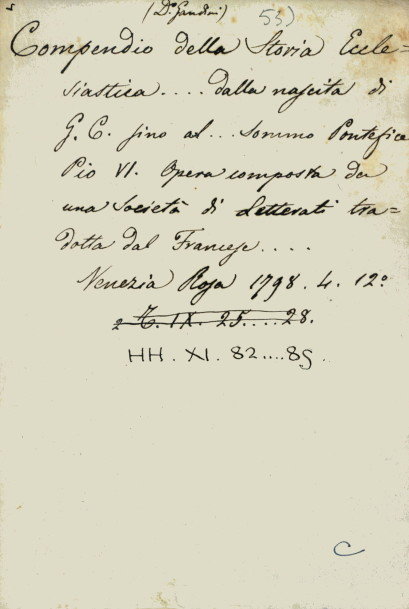 (Do. Gandini) 53)
Compendio della Storia Eccle=
siastica .... dalla nascita di
G. C. fino al... sommo Pontefice
Pio VI. Opera composta da
una Società di Letterati tra=
dotta dal Francese ....
Venezia Rosa 1798. 4. 12°
IX. 25....28.
HH. XI. 82....85.
C